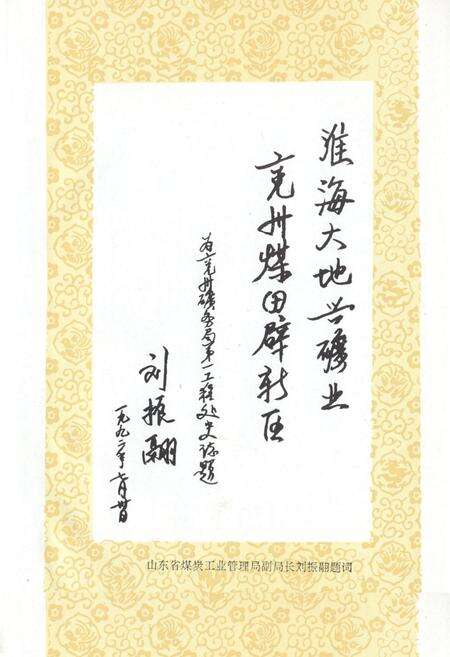 淮海大地兴矿业
兖州煤田辟新区
为兖州矿务局第一工程处史志题
刘振翮
一九九二年七月廿日
山东省煤炭工业管理局副局长刘振翮题词